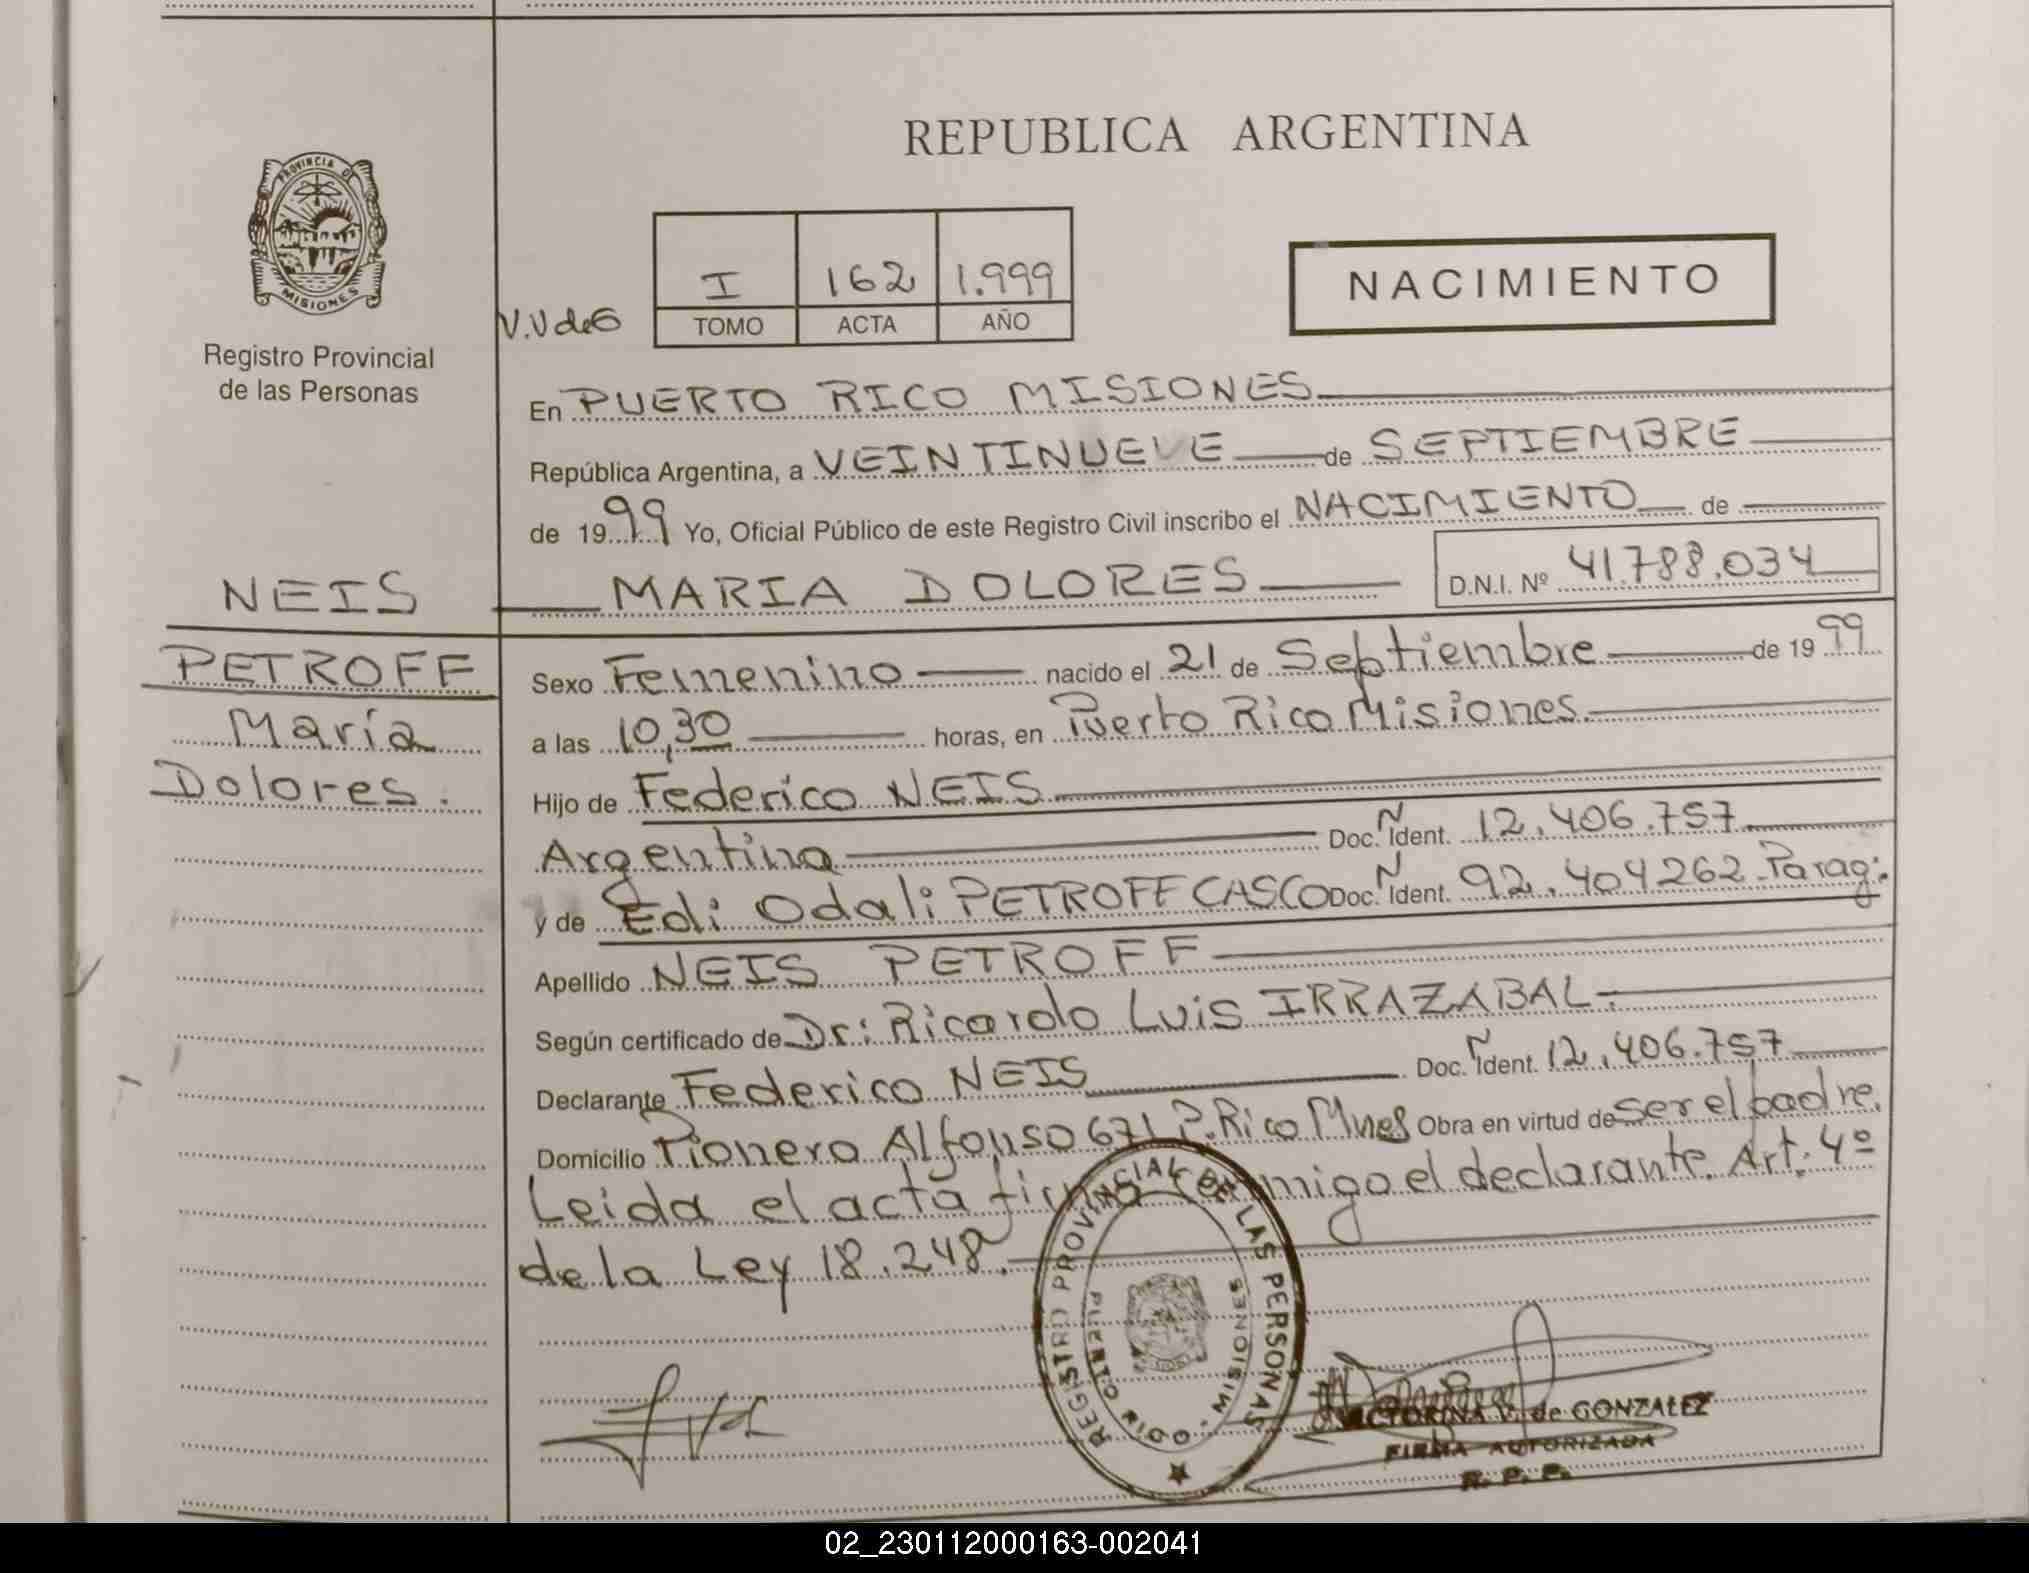 REPUBLICA ARGENTINA
PROVINCIA DE
MISIONES
Registro Provincial
de las Personas
V.V de G
I 162 1.999
TOMO ACTA AÑO
NACIMIENTO
En PUERTO RICO MISIONES
República Argentina, a VEINTINUEVE de SEPTIEMBRE
de 1999 Yo, Oficial Público de este Registro Civil inscribo el NACIMIENTO de
MARIA DOLORES D.N.I. Nº 41.788.034
NEIS
PETROFF
María
Dolores.
Sexo Femenino nacido el 21 de Septiembre de 1999
a las 10,30 horas, en Puerto Rico Misiones.
Hijo de Federico NEIS
Argentina Doc. Ident. Ñ 12.406.757
y de Edi Odali PETROFF CASCO Doc. Ident. Ñ 92.404262 Parag.
Apellido NEIS PETROFF
Según certificado de Dr: Ricardo Luis IRRAZABAL.
Declarante Federico NEIS Doc. Ident. Ñ 12.406.757
Domicilio Pionero Alfonso 671 P. Rico Mnes Obra en virtud de ser el padre.
Leida el acta firma conmigo el declarante. Art. 4º
de la Ley 18.248.
REGISTRO PROVINCIAL DE LAS PERSONAS
PUERTO RICO - MISIONES
VICTORINA V. de GONZALEZ
FIRMA AUTORIZADA
R. P. P.
02_230112000163-002041